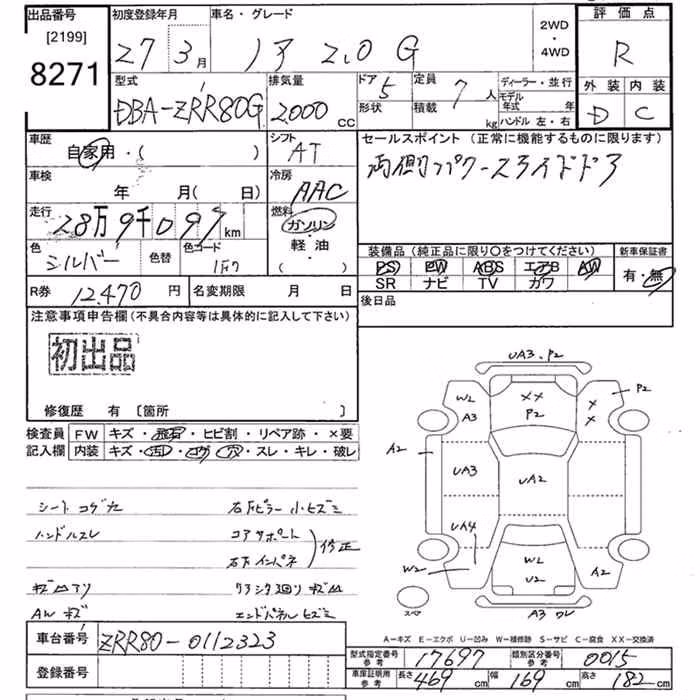 出品番号
[2199]
8271
初度登録年月
27年3月
車名・グレード
ノア 2.0 G
2WD
・
4WD
評価点
R
外装 内装
D C
型式
DBA-ZRR80G
排気量
2000 CC
ドア 5
形状
定員 7人
積載 kg
ディーラー・並行
モデル年式 年
ハンドル 左・右
車歴
自家用・( )
シフト
AT
車検
年 月( 日)
冷房
AAC
走行
28万9千097km
燃料
ガソリン
・
軽・油
( )
色
シルバー
色替
色コード
1F7
セールスポイント (正常に機能するものに限ります)
両側パワースライドドア
装備品 (純正品に限り〇をつけてください)
PS PW ABS エアB AW
SR ナビ TV カワ
新車保証書
有・無
R券 12.470 円
名変期限 月 日
後日品
注意事項申告欄 (不具合内容等は具体的に記入して下さい)
初出品
修復歴 有 〔箇所 〕
検査員
記入欄
FW キズ・飛石・ヒビ割・リペア跡・×要
内装 キズ・汚レ・コゲ・穴・スレ・キレ・破レ
シートコゲ穴
ハンドルスレ
キズ凹アリ
AWキズ
右Fピラー小ヒズミ
コアサポート
右Fインパネ
修正
エンドパネルヒズミ
UA3.P2
W2
A3
××
P2
P2
×
×
A2
A2
UA3
UA2
UA4
W2
W2
U2
A2
A3 ワレ
スペア
A-キズ E-エクボ U-凹み W-補修跡 S-サビ C-腐食 XX-交換済
車台番号 ZRR80-0112323
登録番号
型式指定番号 参考 17697
類別区分番号 参考 0015
車庫証明用 参考 長さ 469 cm 幅 169 cm 高さ 182 cm